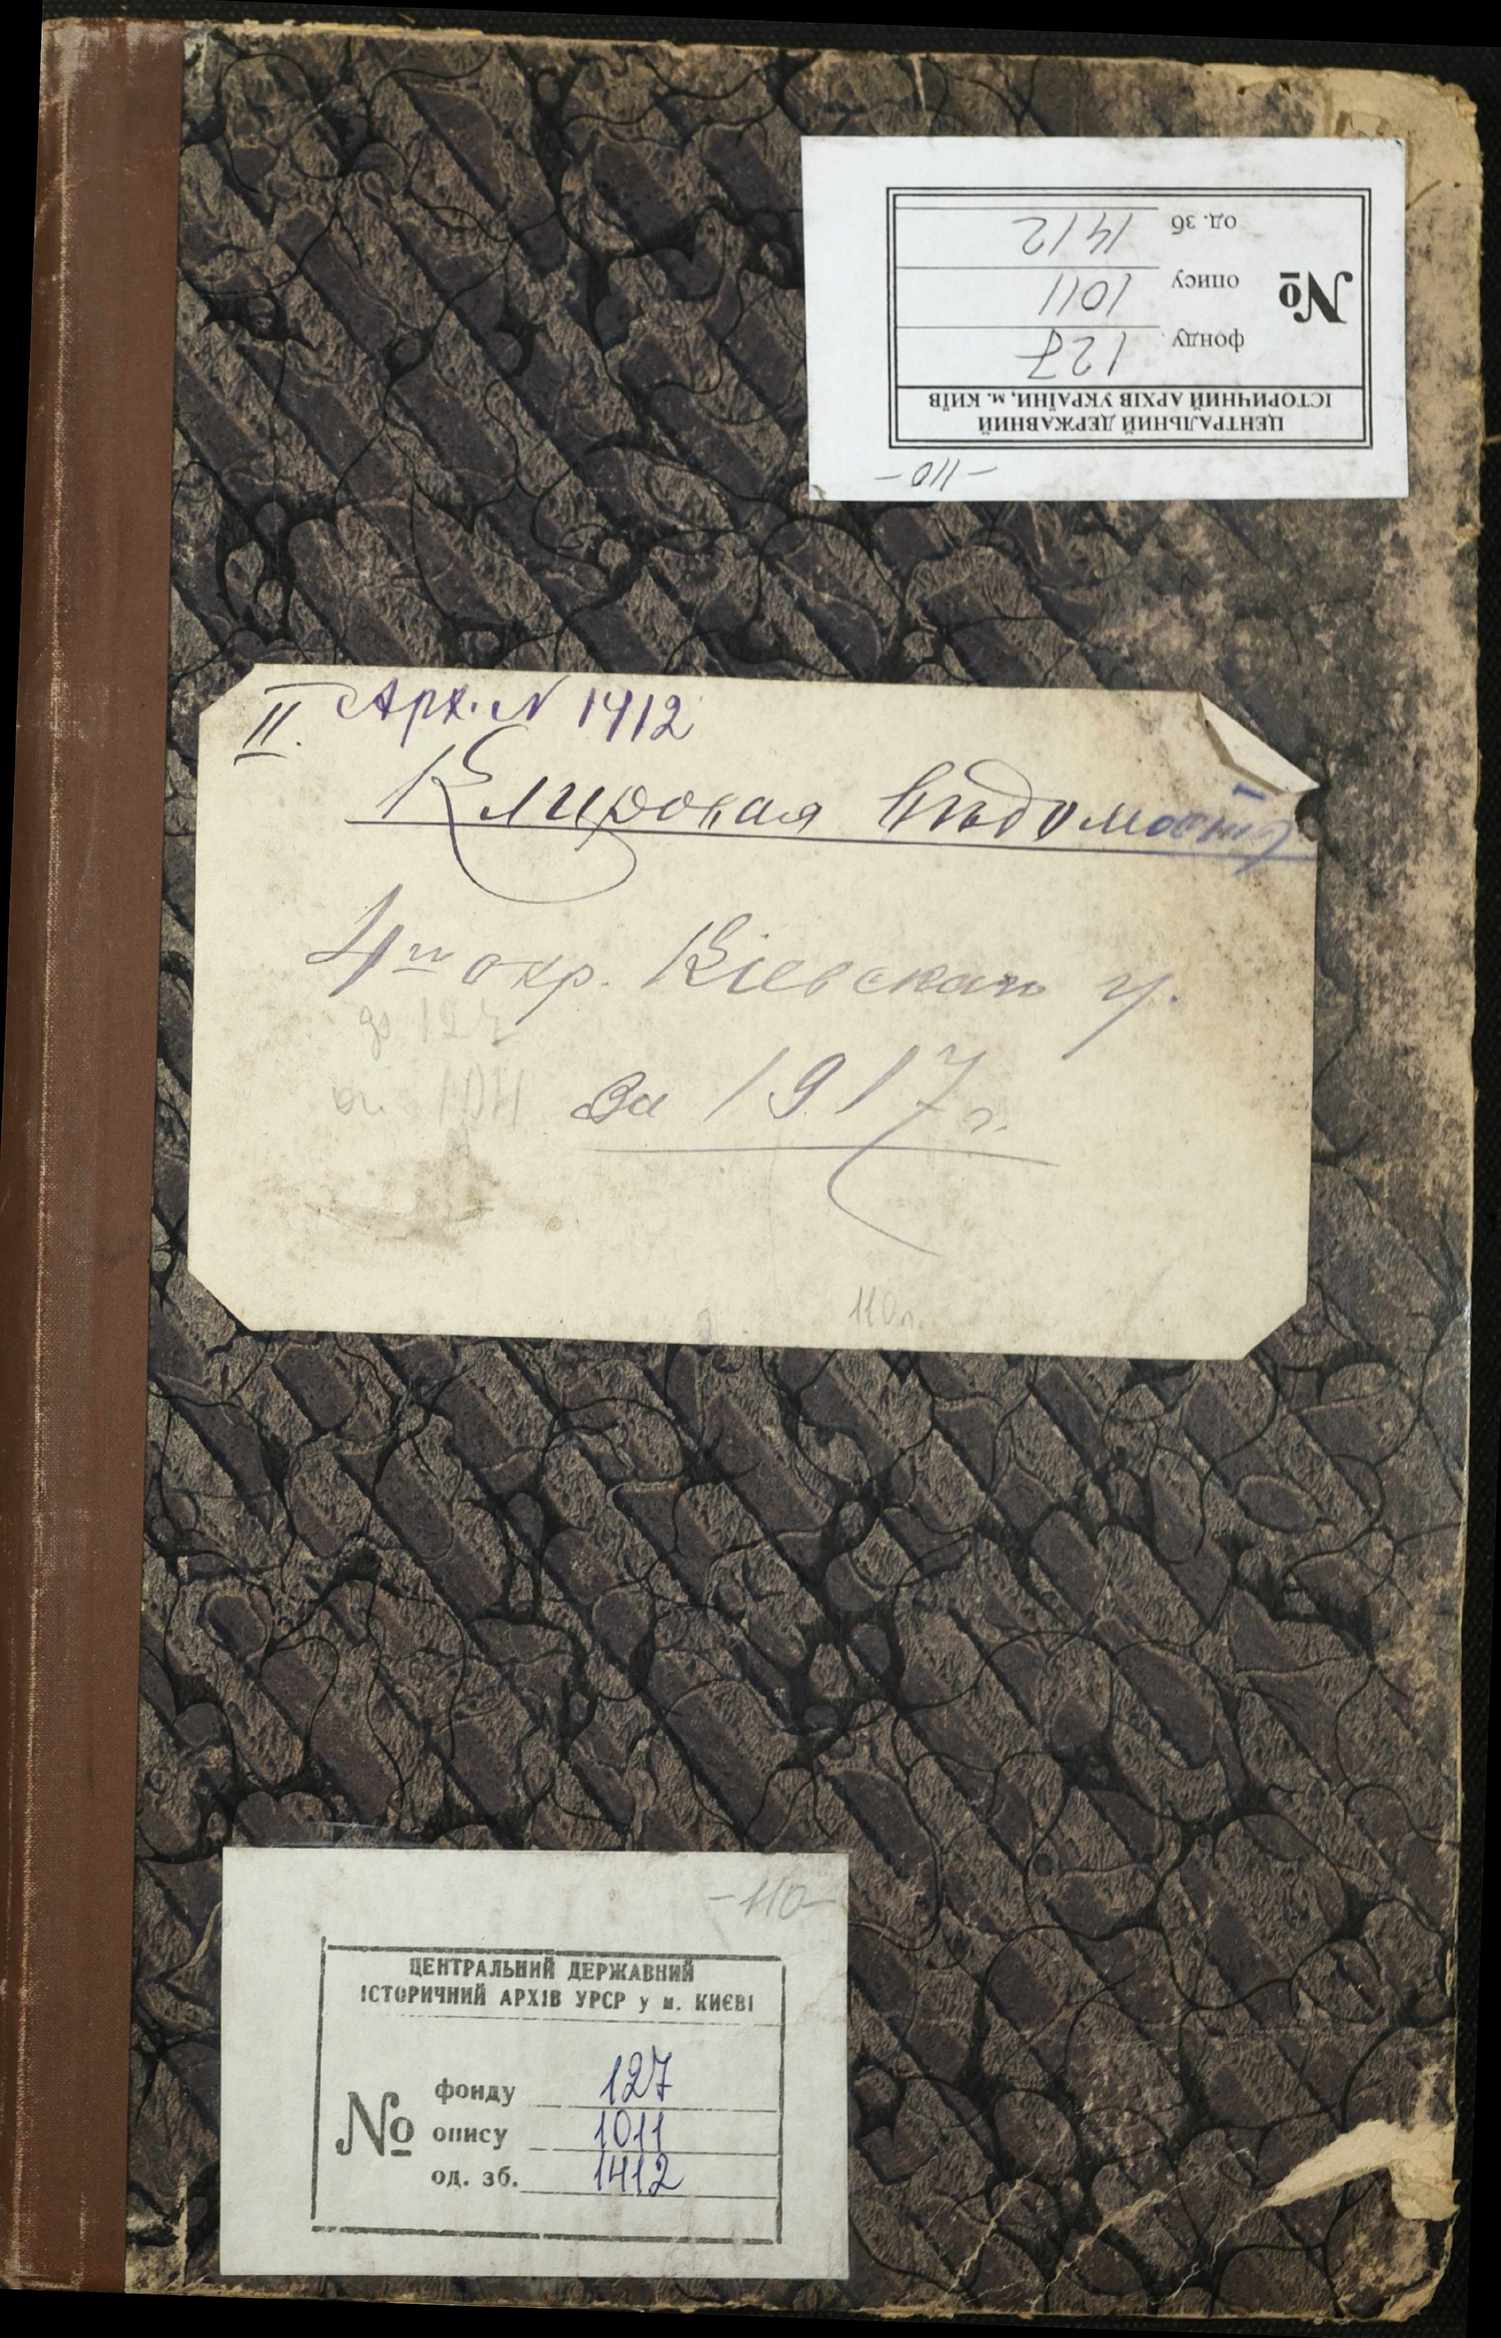 -110-
ЦЕНТРАЛЬНИЙ ДЕРЖАВНИЙ
ІСТОРИЧНИЙ АРХІВ УКРАЇНИ, м. КИЇВ
№
фонду 127
опису 1011
од. зб 1412
II. Арх. N 1412
Клировая вѣдомость
4го окр. Кіевскаго у.
за 1917 г.
110 л.
-110-
ЦЕНТРАЛЬНИЙ ДЕРЖАВНИЙ
ІСТОРИЧНИЙ АРХІВ УРСР у м. КИЄВІ
№
фонду 127
опису 1011
од. зб. 1412